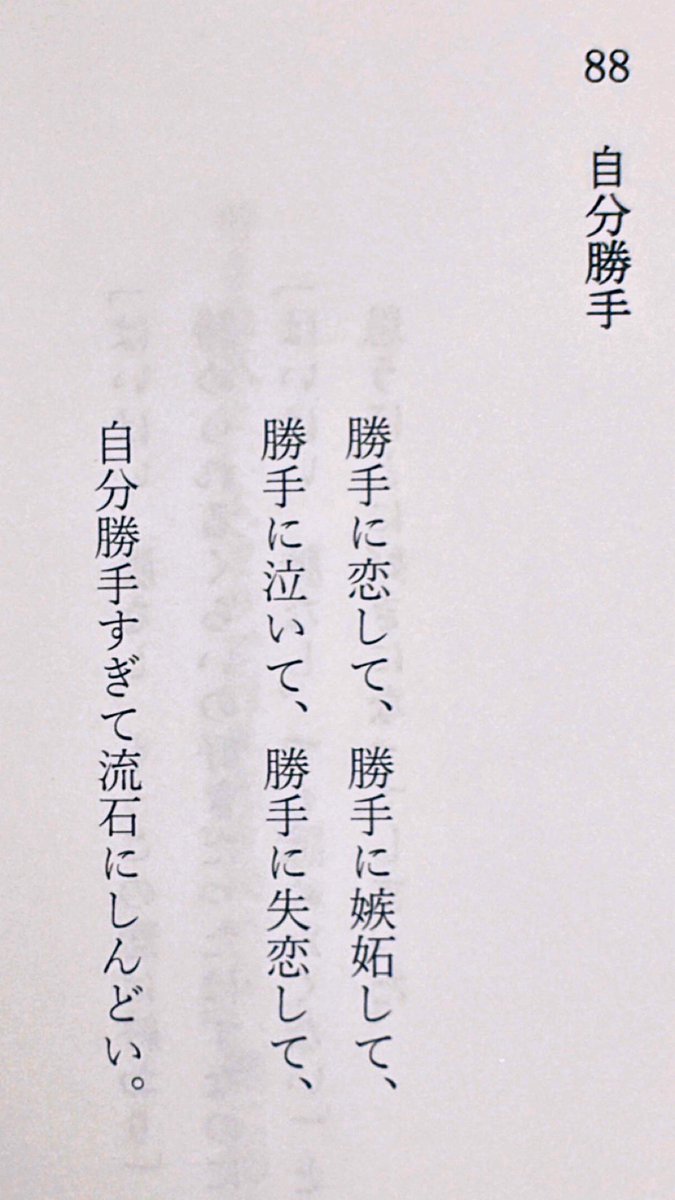 88 自分勝手
勝手に恋して、勝手に嫉妬して、
勝手に泣いて、勝手に失恋して、
自分勝手すぎて流石にしんどい。